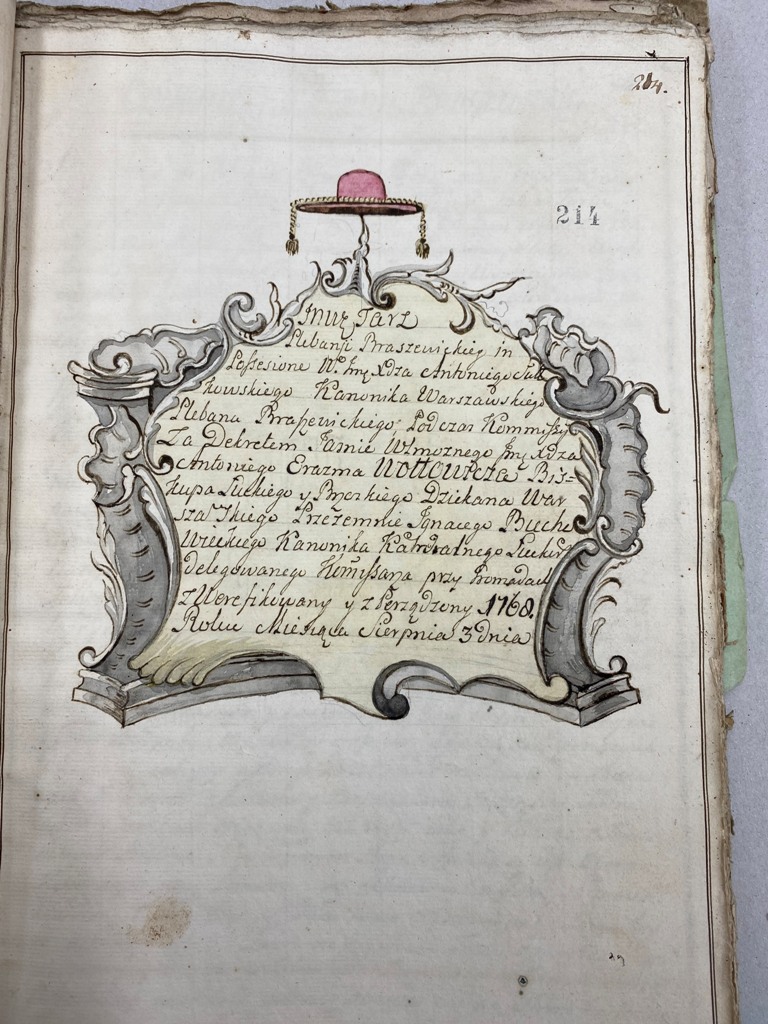 214.
214
Inwętarz
Plebanji Braszewickiey in
Possesione W° Jmę Xdza Antoniego Sul
kowskiego Kanonika Warszawskiego
Plebana Braszewickiego, Podczas Kommissyi
Za Dekretem Jasnie Wżmoznego Jmę Xdza
Antoniego Erazma Wołłowicza Bis=
kupa Łuckiego y Brzezkiego Dziekana War
szawskiego Przezemnie Ignacego
Kanonika Katedralnego Łuckieg
delegowanego Komissarza przy Gromadach
zWerefikowany y z Perządzony 1768.
Roku Miesiąca Sierpnia 3 dnia